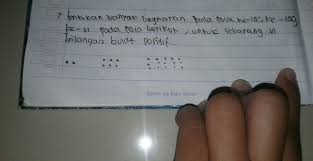 7. tentukan banyak lingkaran pada pola ke-10, ke-100,
ke-n pada pola berikut, untuk sebarang n
bilangan bulat positif